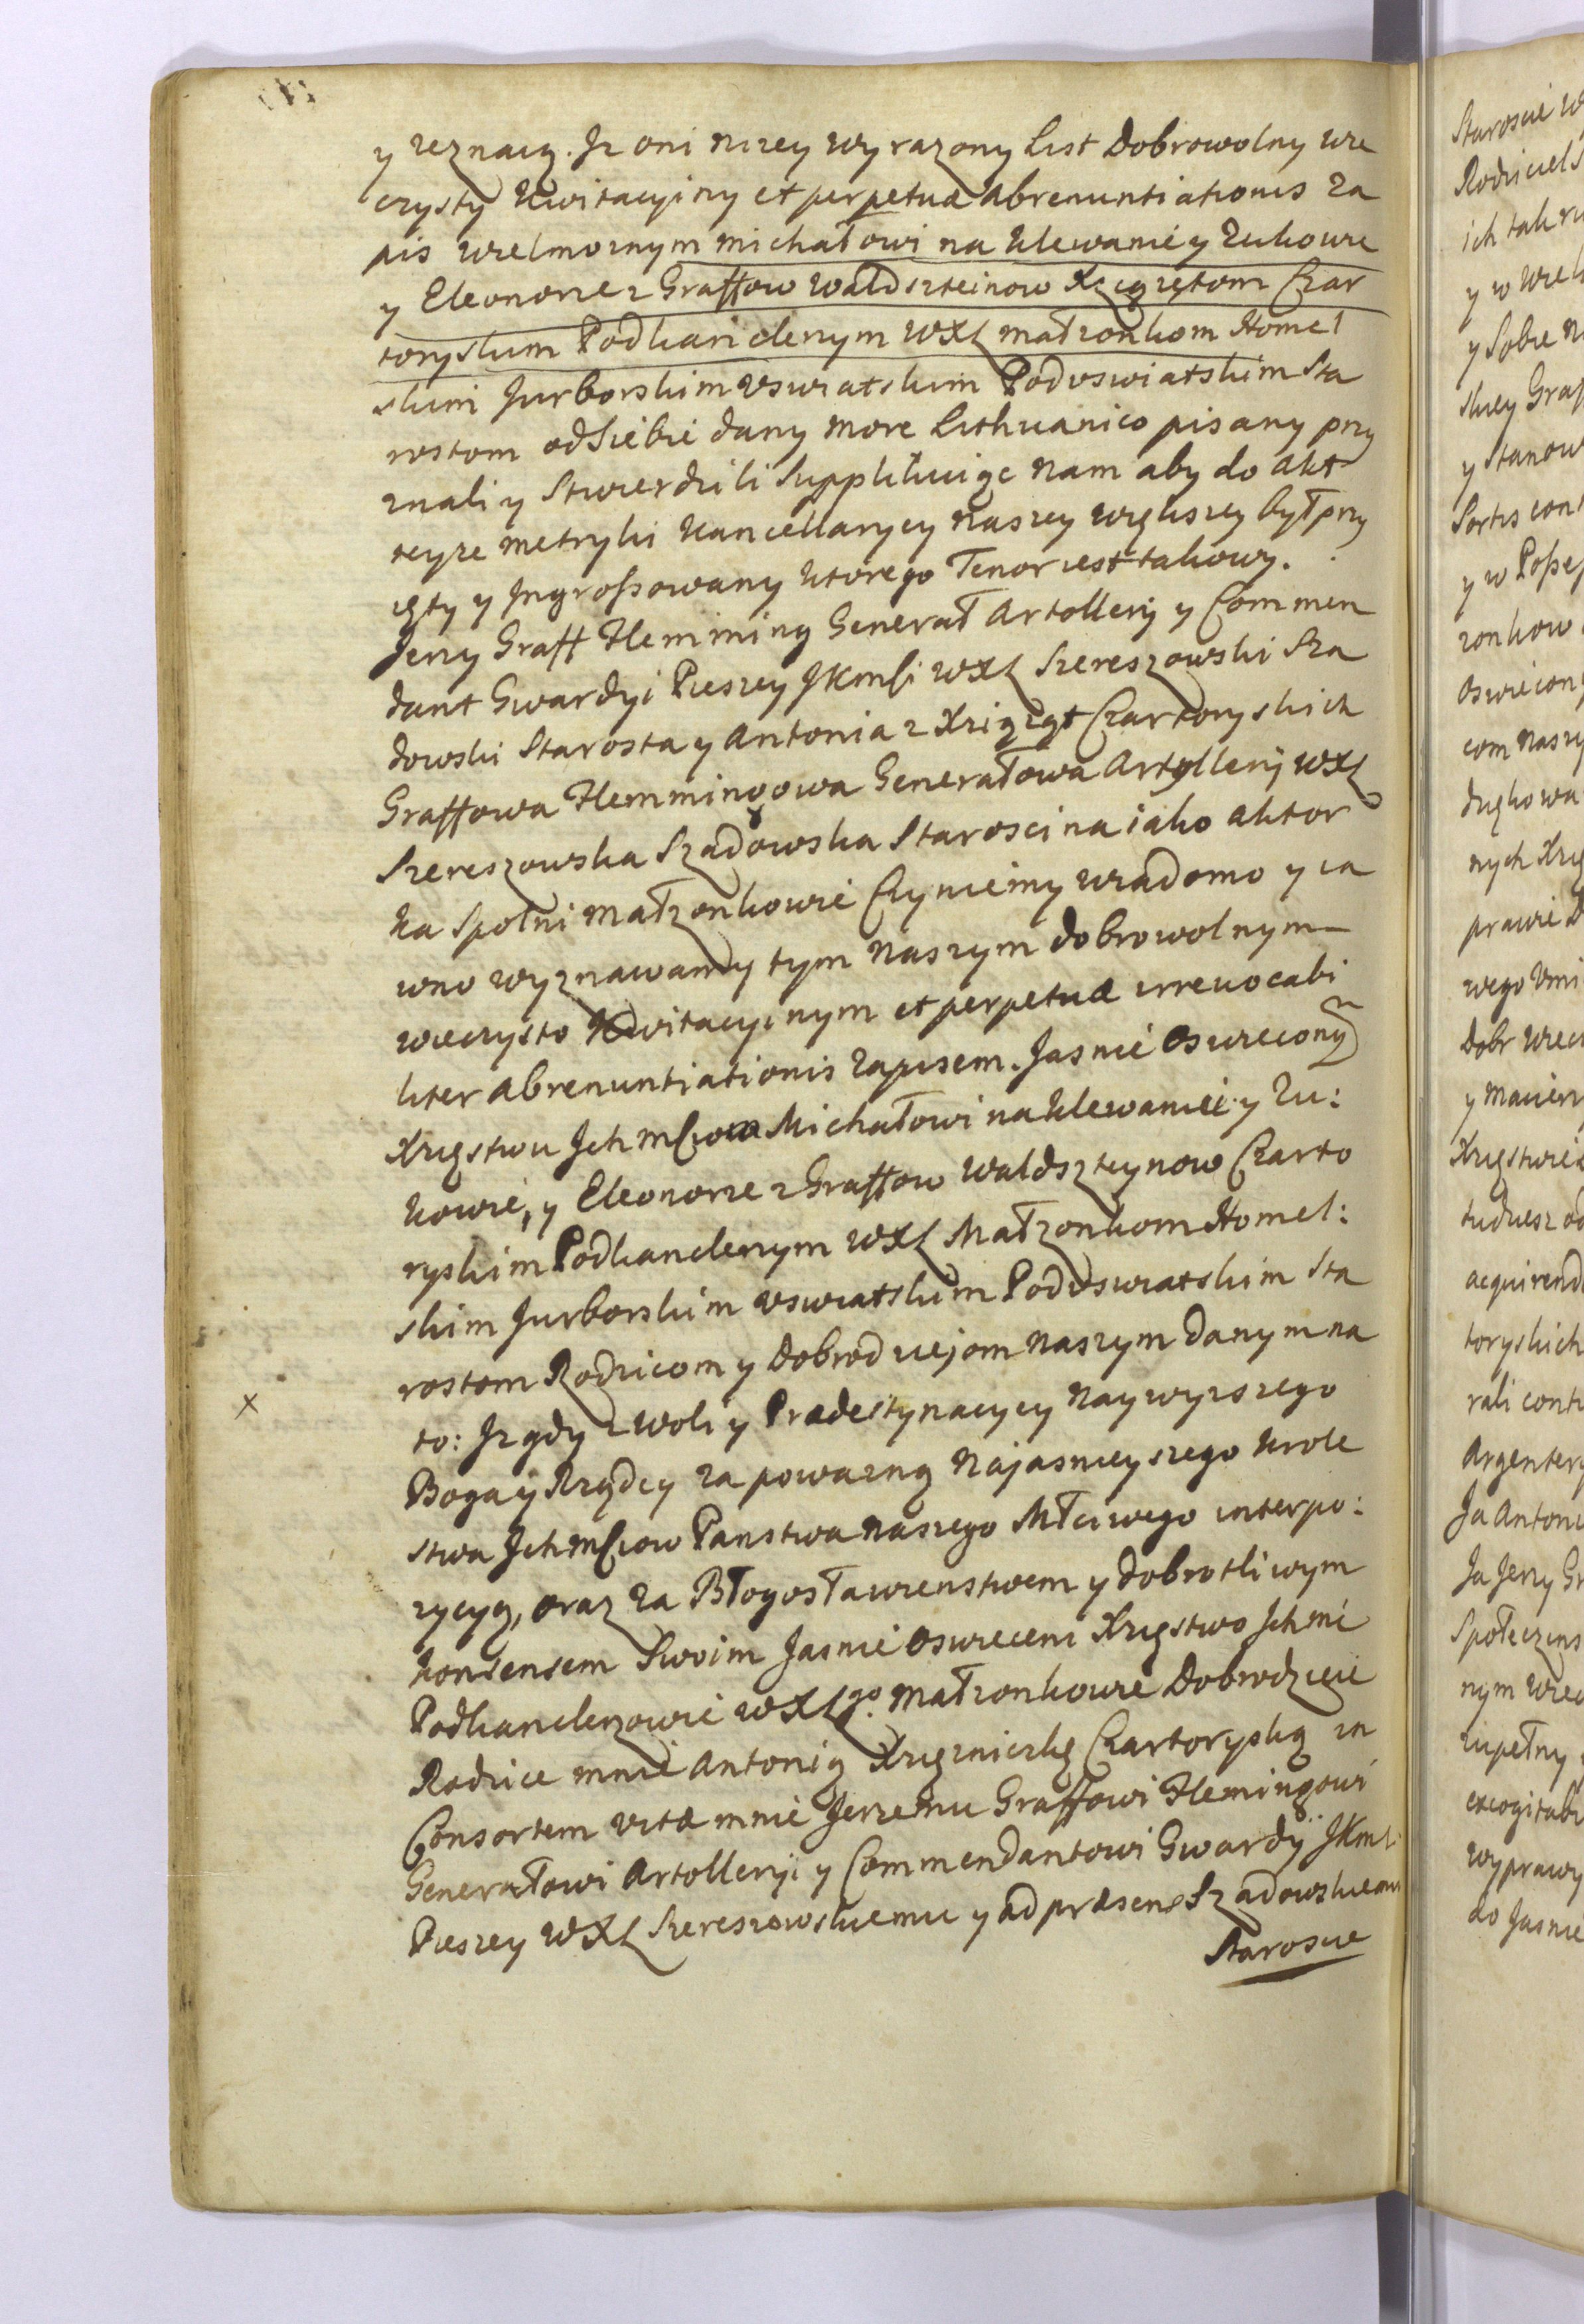 y zeznaią. Jz oni nizey wyrazony List Dobrowolny wie
czysty Kwitacyiny et perpetuæ Abrenuntiationis Za
pis wielmoznym Michałowi na Klewanie y Zukowie
y Eleonorze z Graffow Waldszteinow Xciązętom Czar
toryskim Podkanclerzym WXL małzonkom Homel
skim Jurborskim Uswiatskim Poduswiatskim Sta
rostom od Siebie dany more Lithuanico pisany przy
znali y Stwierdzili Supplikuiąc Nam aby do Akt
teyze metryki Kancellaryey Naszey większey był przy
ięty y Jngrossowany którego Tenor iest takowy.
Jerzy Graff Flemming Generał Artollerij y Commen
dant Gwardyi Pieszey JKMsi WXL Szereszowski Sza
dowski Starosta y Antonia z Xziążąt Czartoryskich
Graffowa Flemmingowa Generałowa Artylleryj WXL
Szereszowska Szadowska Staroscina iako Aktor
ka Społni Małzonkowie Czyniemy wiadomo y ia
wno wyznawamy tym Naszym dobrowolnym
wieczysto Kwitacyinym et perpetuæ irreuocabi
liter Abrenuntiationis Zapisem. Jasnie Oswieconÿ
Xięstwu Jchmsciom Michałowi na Klewanie y Zu:
kowie, y Eleonorze z Graffow Waldszteynow Czarto
ryskim Podkanclerzym WXL Małzonkom Homel:
skim Jurborskim Uswiatskim Poduswiatskim Sta
rostom Rodzicom y Dobrodziejom Naszym Danym na
to: Jz gdy z woli y Prædestynacyey Naywyzszego
Boga y Rządcy za powazną Najasnieyszego Krole
stwa Jchmsciow Panstwa Naszego Młciwego interpo:
zycyą, oraz za Błogosławienstwem y dobrotliwym
konsensem Swoim Jasnie Oswieceni Xięstwo Jchmć
Podkanclerzowie WXLgo. Małzonkowie Dobrodzieie
Rodzice mnie Antonią Xięzniczkę Czartoryską in
Consortem vitæ mnie Jerzemu Graffowi Flemingowi
Generałowi Artolleryi y Commendantowi Gwardÿ JKMs
Pieszey WXL Szereszowskiemu y ad præsens Szadowskiemu
Staroscie